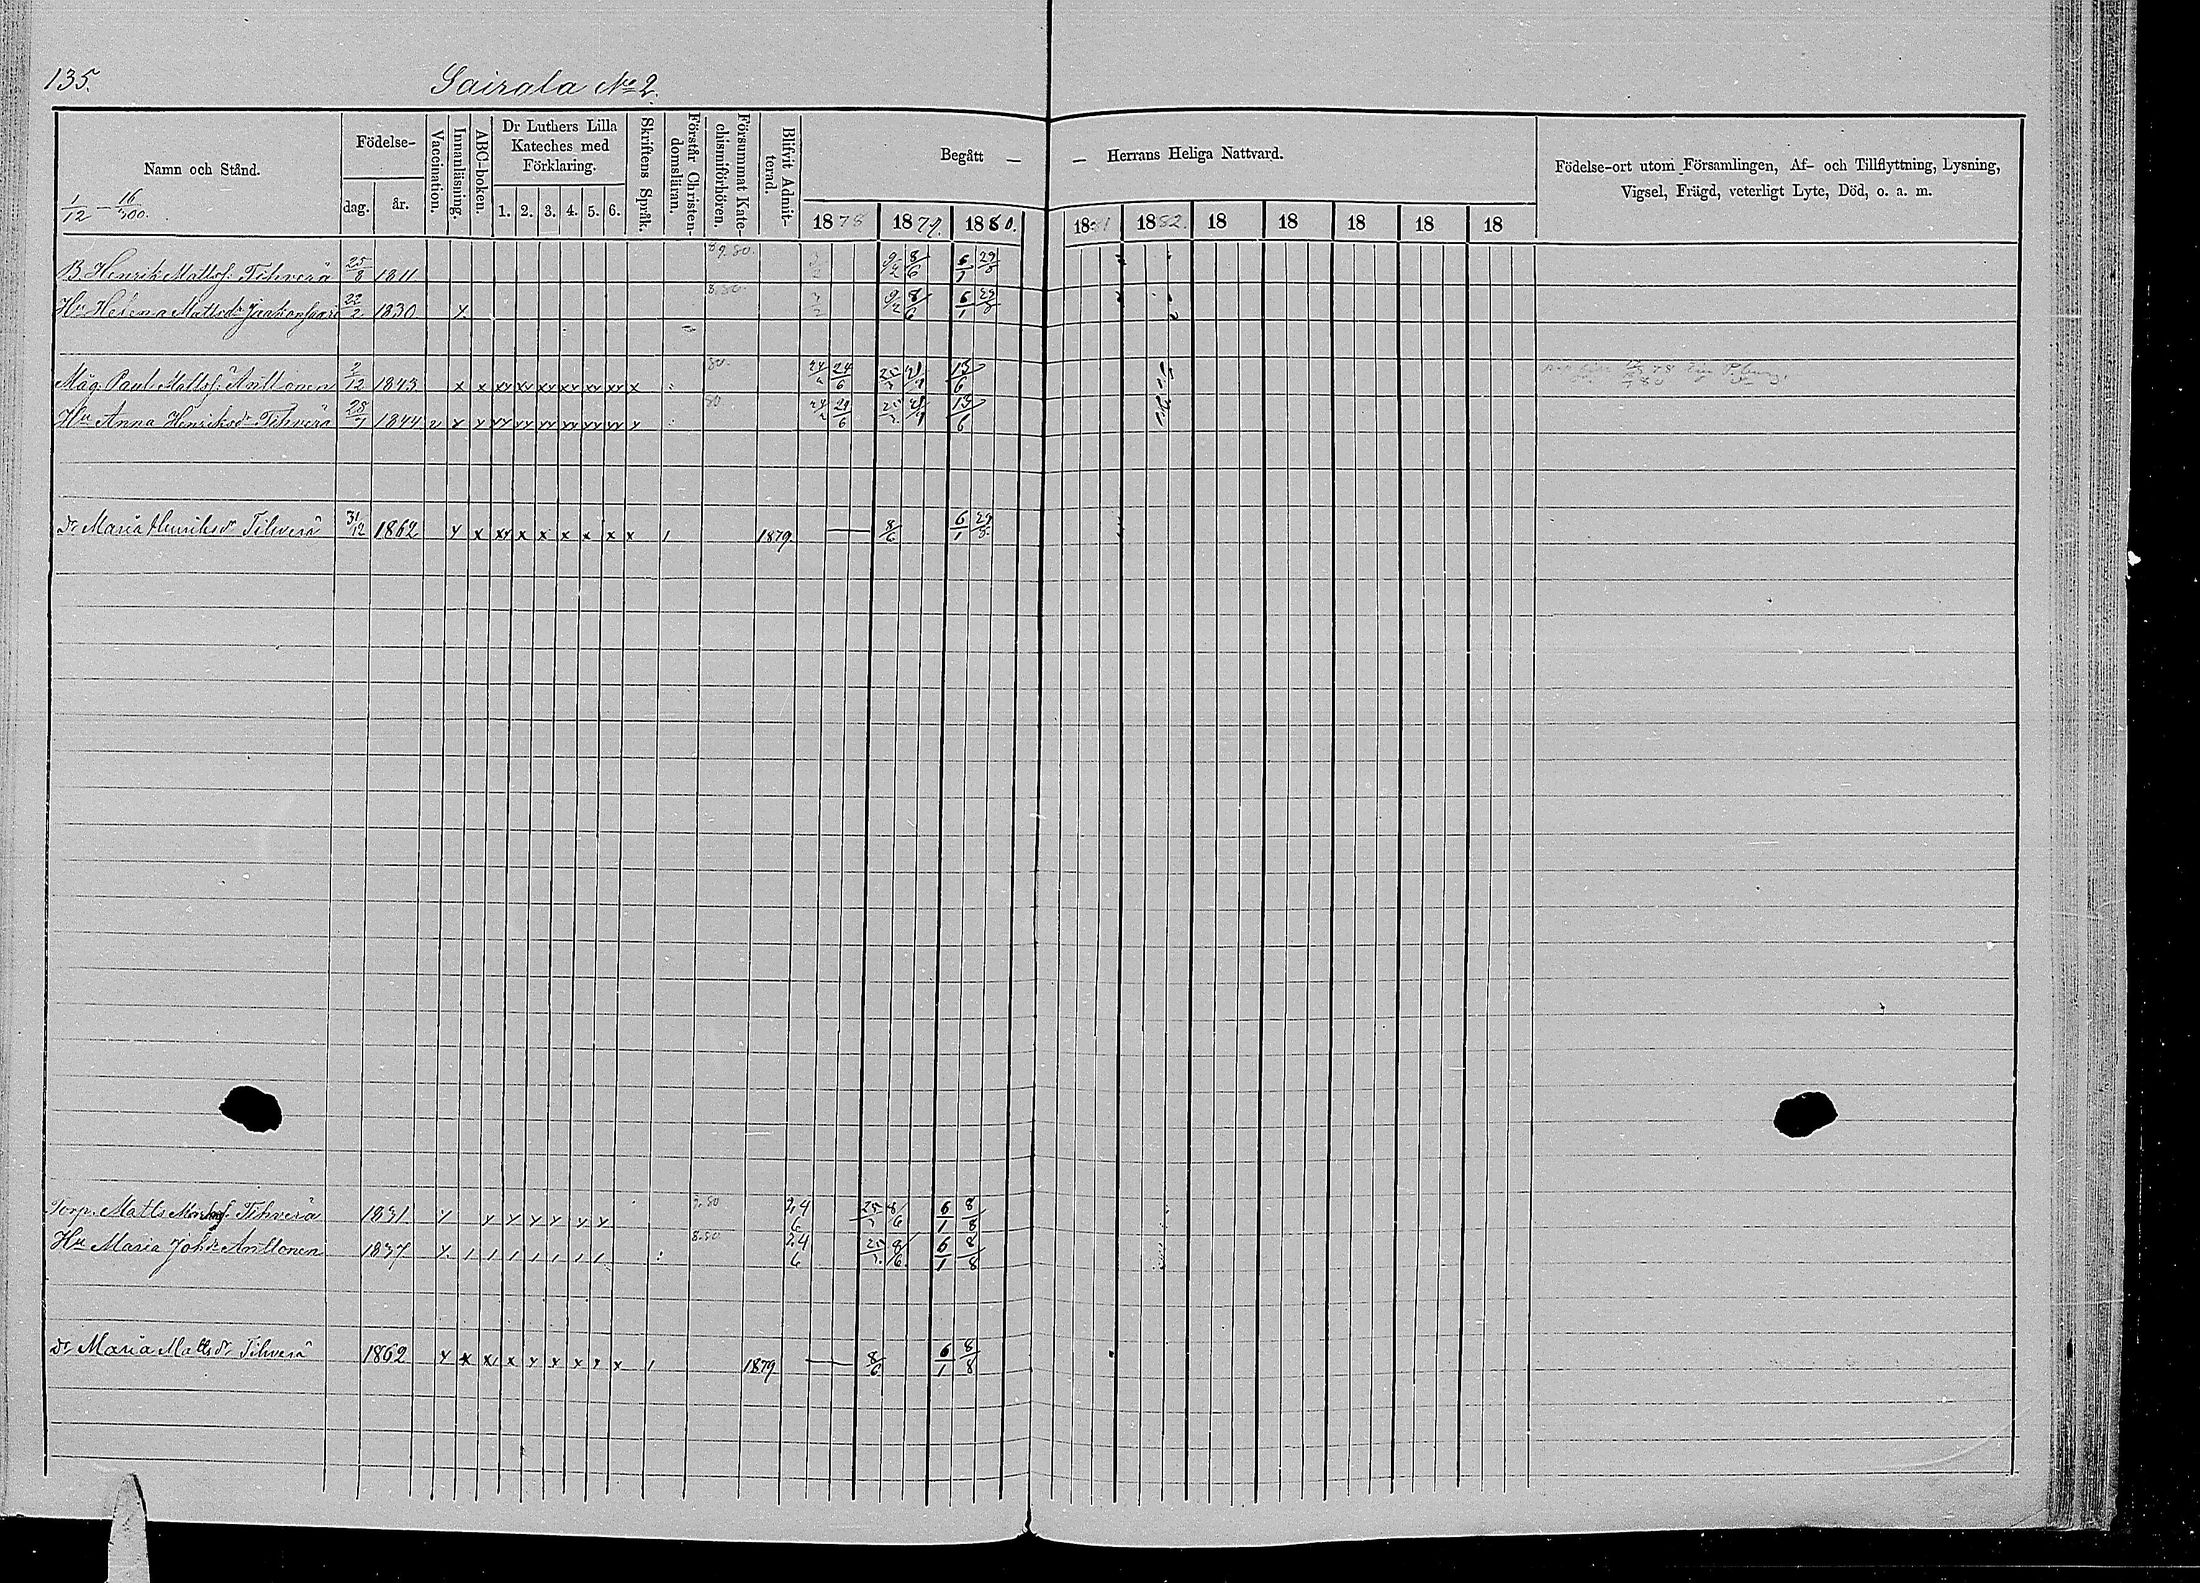 135.
Sairala No 2.
Namn och Stånd.
1/12 - 16/300.
Födelse-
dag.
år.
Vaccination.
Innanläsning.
ABC-boken.
Dr Luthers Lilla
Kateches med
Förklaring.
1. 2. 3. 4. 5. 6.
Skriftens Språk.
Förstår Christen-
domsläran.
Försummat Kate-
chismiförhören.
Blifvit Admit-
terad.
Begått — — Herrans Heliga Nattvard.
1878 1879. 1880. 1881 1882. 18 18 18 18 18
Födelse-ort utom Församlingen, Af- och Tillflyttning, Lysning,
Vigsel, Frägd, veterligt Lyte, Död, o. a. m.
B. Henrik Mattsf. Tihverä 25/8 1811 9/2 8/6 6/1 29/8
Hu Helena Mattsdr 22/2 1830 x 9/2 8/6 6/1 29/8
Måg Paul Mattsf. Anttonen 2/12 1843 x x xx xx xx xx xx xx x 80. 24/6 13/6
Hu Anna Henriksdr Tihverä 1844 v x x xx xx xx xx xx xx x 80 13/6
dr Maria Henriksdr Tihverä 31/12 1862 x x xx x x x x x x 1 1879. — 8/6 6/1 29/8
Torp. Matts Tihverä 1831 x x x x x x x 24/6 8/6 6/1 8/8
Hu Maria Joh.dr Anttonen 1837 x 8.80 24/6 8/6 6/1 8/8
dr Maria Mattsdr Tihverä 1862 x x x x x x x x x 1 1879 — 8/6 6/1 8/8